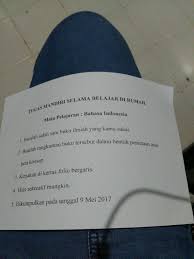 TUGAS MANDIRI SELAMA BELAJAR DI RUMAH
Mata Pelajaran : Bahasa Indonesia
1. Bacalah salah satu buku ilmiah yang kamu sukai
2. Buatlah rangkuman buku tersebut dalam bentuk pemetaan atau
peta konsep
3. Kerjakan di kertas folio bergaris
4. Hias sekreatif mungkin.
5. Dikumpulkan pada tanggal 9 Mei 2017